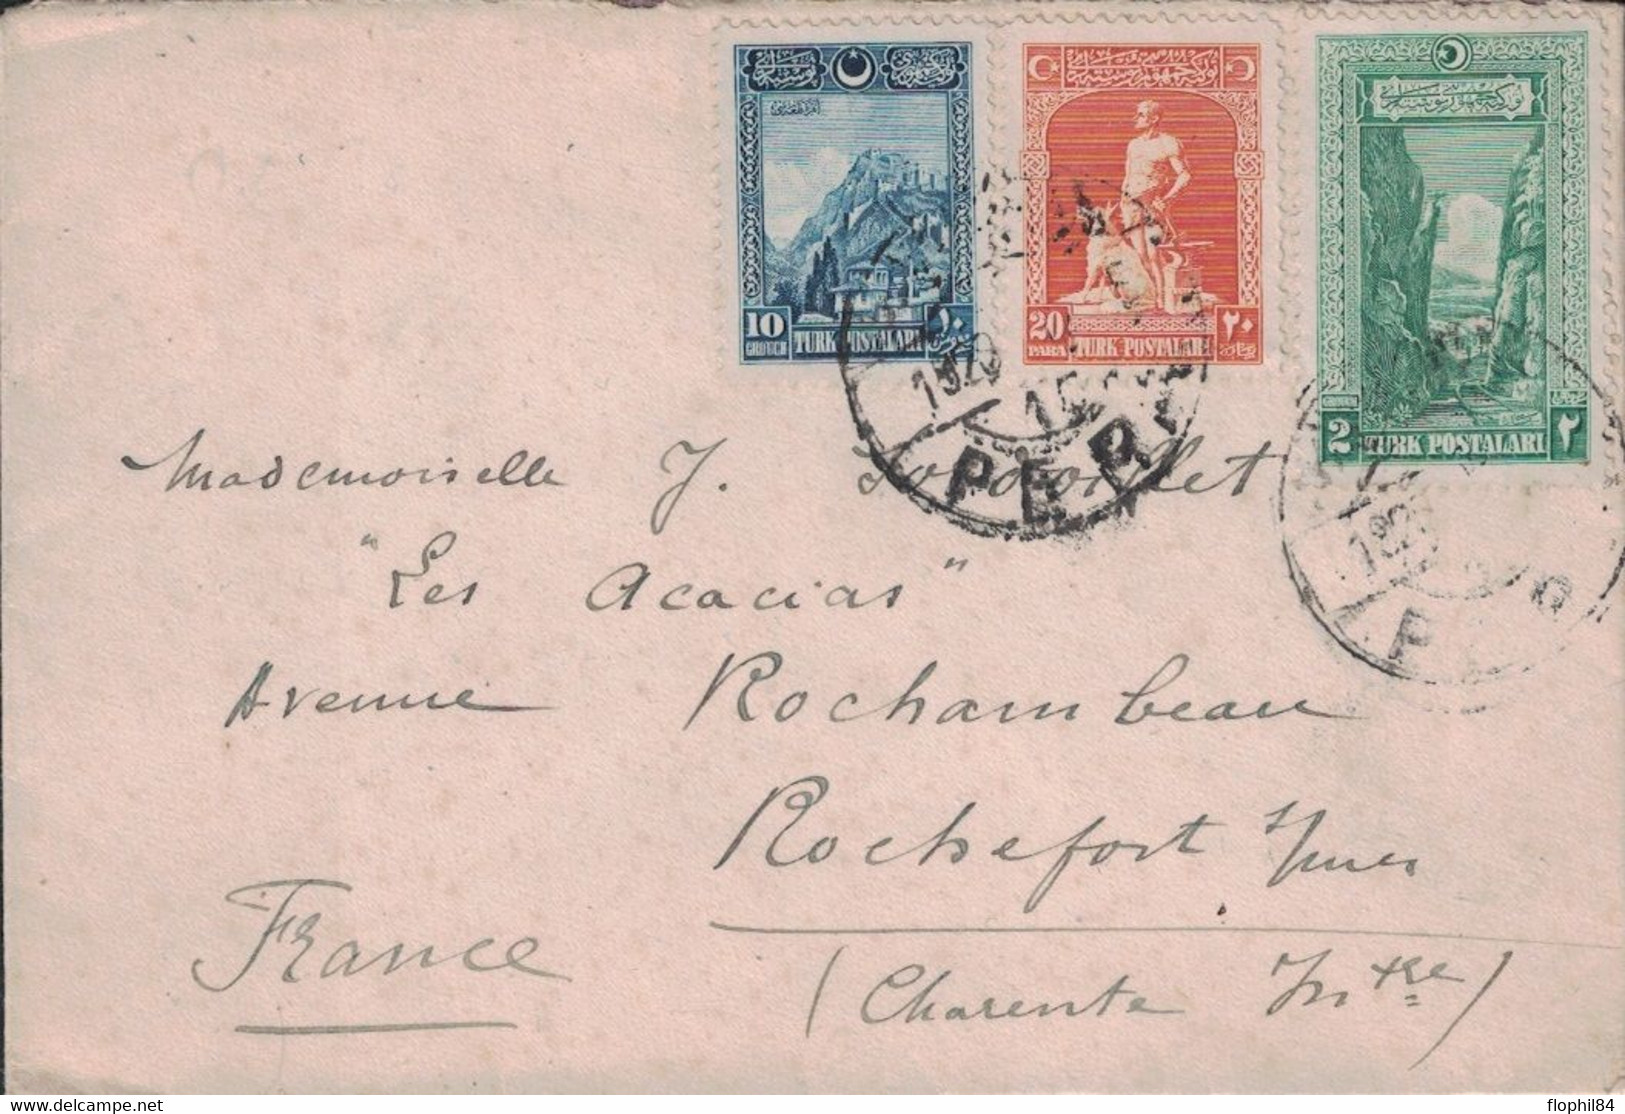 10
GROUCH
TURK POSTALARI
١٠
20
PARA
TURK POSTALARI
٢٠
2
TURK POSTALARI
٢
1929
PERA
Mademoiselle J.
"Les Acacias"
Avenue Rochambeau
Rochefort s/mer
(Charente Inf<sup>re</sup>)
France
flophil84